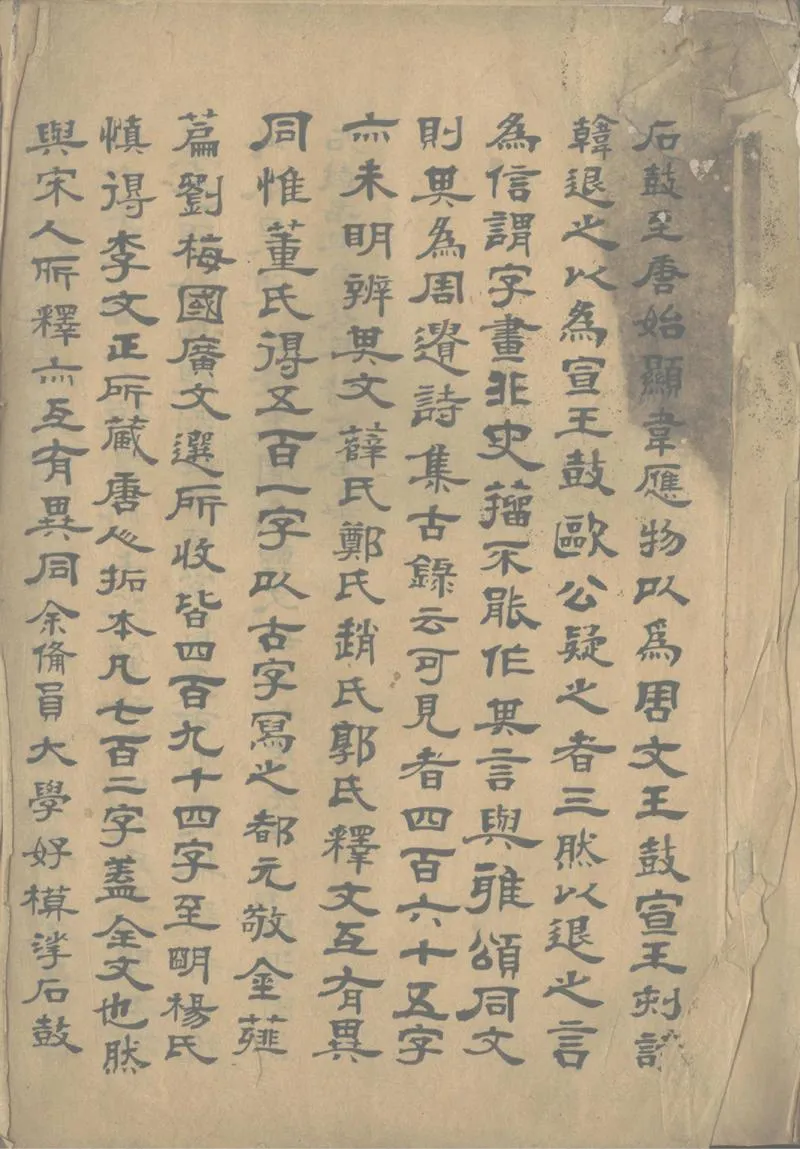 石鼓至唐始顯韋應物以爲周文王鼓宣王刻詩
韓退之以為宣王鼓歐公疑之者三然以退之言
為信謂字畫非史籀不能作其言與雅頌同文
則其為周遺詩集古錄云可見者四百六十五字
亦未明辨其文薛氏鄭氏趙氏郭氏釋文互有異
同惟董氏得五百一字以古字寫之都元敬金薤
篇劉梅國廣文選所收皆四百九十四字至明楊氏
慎得李文正所藏唐人拓本凡七百二字蓋全文也然
與宋人所釋亦互有異同余備員大學好模挲石鼓